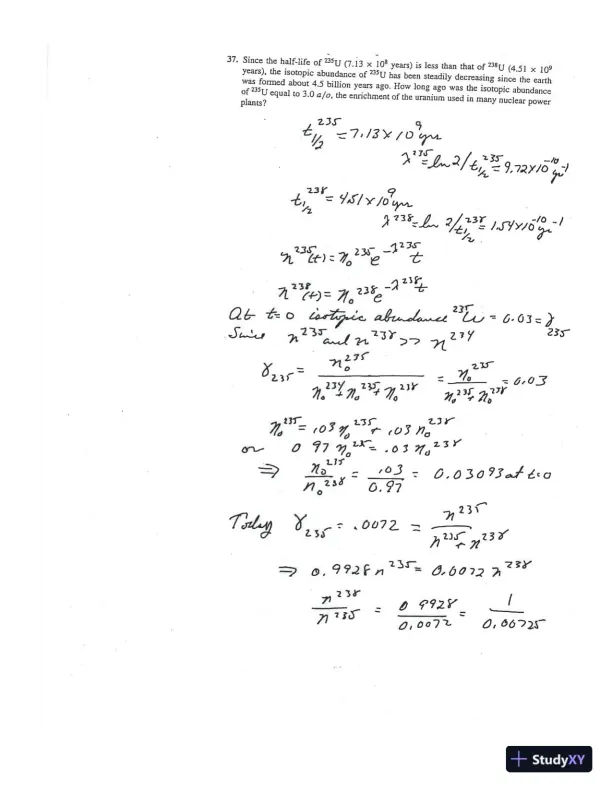 37. Since the half-life of ²³⁵U (7.13 × 10⁸ years) is less than that of ²³⁸U (4.51 × 10⁹
years), the isotopic abundance of ²³⁵U has been steadily decreasing since the earth
was formed about 4.5 billion years ago. How long ago was the isotopic abundance
of ²³⁵U equal to 3.0 a/o, the enrichment of the uranium used in many nuclear power
plants?
t₁/₂²³⁵ = 7.13 × 10⁹ yrs
λ²³⁵ = ln 2/t₁/₂²³⁵ = 9.72×10⁻¹⁰ yr⁻¹
t₁/₂²³⁸ = 4.51 × 10⁹ yrs
λ²³⁸ = ln 2/t₁/₂²³⁸ = 1.54×10⁻¹⁰ yr⁻¹
n²³⁵(t) = n₀²³⁵ e^(-λ²³⁵t)
n²³⁸(t) = n₀²³⁸ e^(-λ²³⁸t)
At t=0 isotopic abundance ²³⁵U = 0.03 = γ₂₃₅
Since n²³⁵ and n²³⁸ >> n²³⁴
γ₂₃₅ = n₀²³⁵ / (n₀²³⁴ + n₀²³⁵ + n₀²³⁸) = n₀²³⁵ / (n₀²³⁵ + n₀²³⁸) = 0.03
n₀²³⁵ = .03 n₀²³⁵ + .03 n₀²³⁸
or 0 97 n₀²³⁵ = .03 n₀²³⁸
⇒ n₀²³⁵ / n₀²³⁸ = .03 / 0.97 = 0.03093 at t=0
Today γ₂₃₅ = .0072 = n²³⁵ / (n²³⁵ + n²³⁸)
⇒ 0.9928 n²³⁵ = 0.0072 n²³⁸
n²³⁸ / n²³⁵ = 0 9928 / 0.0072 = 1 / 0.00725
StudyXY